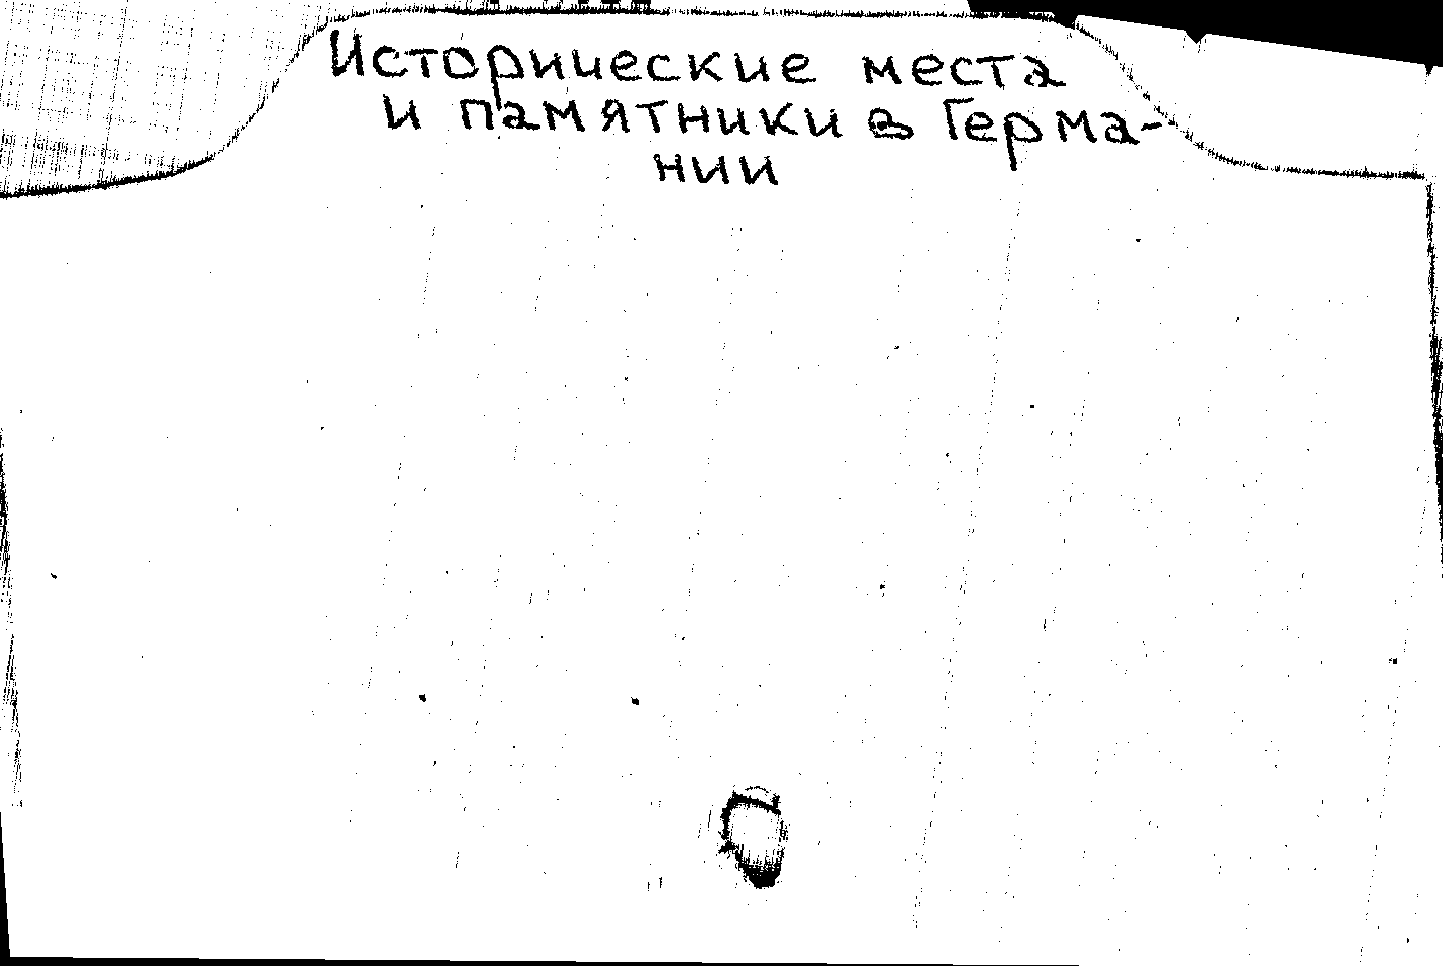 Исторические места
и памятники в Герма-
нии